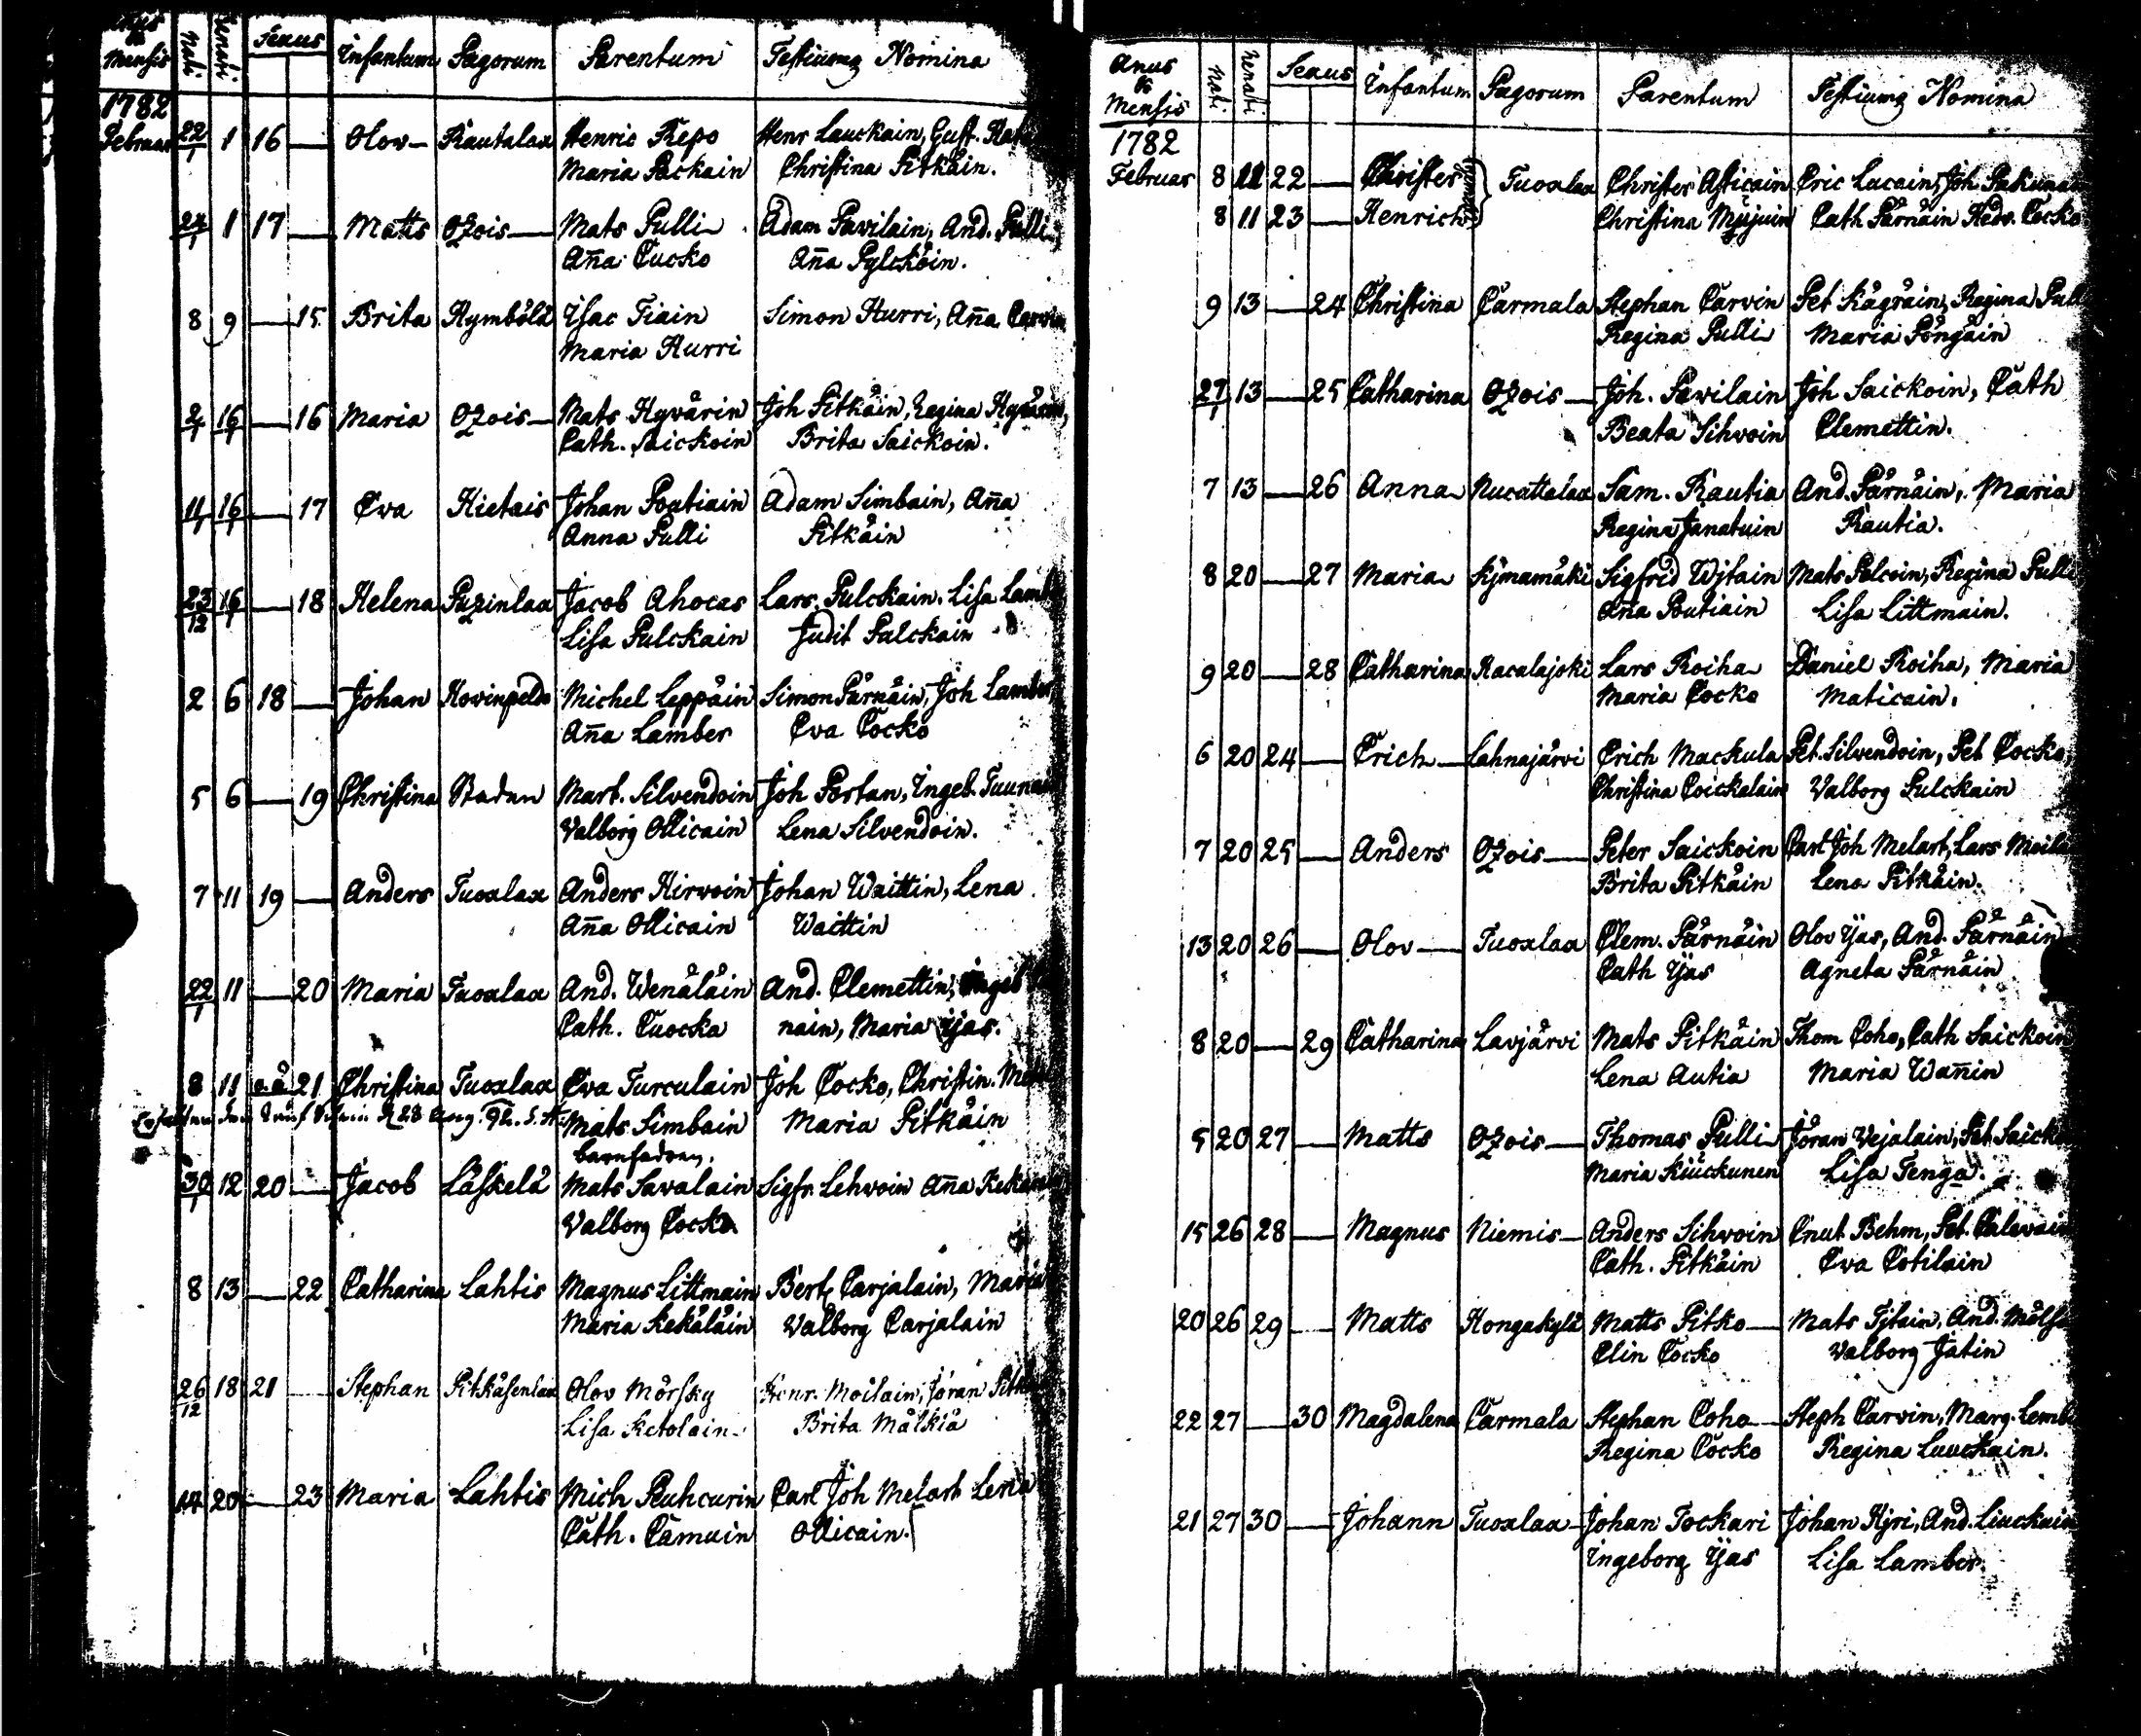 Mensis Nati Renati Sexus Infantum Pagorum Parentum Testiumq Nomina
1782
Februar 22/1 1 16 — Olov Rautalax Henric Repo Henr Lauckain, Gust.
Maria Packain Christina Pitkäin.
24/1 1 17 — Matts Ozois Mats Pulli Adam Pavilain, And. Pulli
Aña Cucko Aña Pylcköin.
8 9 — 15 Brita Kymbölä Isac Tiain Simon Hurri, Aña Carvin
Maria Hurri
2/1 16/1 — 16 Maria Ozois Mats Hyvärin Joh Pitkäin, Regina Hyvärin,
Cath. Saickoin Brita Saickoin.
11/1 16/1 — 17 Eva Hietais Johan Poutiain Adam Simbain, Aña
Anna Pulli Pitkäin
23/12 16/1 — 18 Helena Puzinlax Jacob Ahocas Lars. Pulckain, Lisa Lamb
Lisa Pulckain Judit Pulckain
2 6 18 — Johan Hovinpeldo Michel Leppäin Simon Pärnäin, Joh Lamber
Aña Lamber Eva Cocko
5 6 — 19 Christina Staden Mart. Silvendoin Joh Portan, Ingeb. Tuuna
Valborg Ollicain Lena Silvendoin.
7 11 19 — Anders Tuoxlax Anders Hirvoin Johan Waittin, Lena
Aña Ollicain Waittin
22/1 11 — 20 Maria Tuoxlax And. Wenäläin And. Clemettin, Ingeb
Cath. Cuocka nain, Maria Ijas.
8 11 o.ä 21 Christina Tuoxlax Eva Turculain Joh Cocko, Christin.
Mats Simbain Maria Pitkäin
barnfadren.
30/1 12 20 — Jacob Läskelä Mats Savalain Sigfr. Lehvoin Aña
Valborg Cocko
8 13 — 22 Catharina Lahtis Magnus Littmain Bert. Carjalain, Maria
Maria Kekäläin Valborg Carjalain
26/12 18 21 Stephan Pitkäsenlax Olov Mörsky Henr. Moilain, Jöran
Lisa Ketolain Brita Mälkiä
14 20 — 23 Maria Lahtis Mich Peuhcurin Carl Joh Melart Lena
Cath. Cämuin Ollicain.
Anus & Mensis Nati Renati Sexus Infantum Pagorum Parentum Testiumq Nomina
1782
Februar 8 11 22 — Christer Tuoxlax Christer Asticain Eric Lucain, Joh Pakunain
8 11 23 — Henrich Christina Mujuin Cath Pärnäin Hedv. Cocko
9 13 — 24 Christina Carmala Stephan Carvin Pet Kägräin, Regina Pull
Regina Pulli Maria Pöngäin
27/1 13 — 25 Catharina Ozois Joh. Pavilain Joh Saickoin, Cath
Beata Sihvoin Clemettin.
7 13 — 26 Anna Nucuttalax Sam. Rautia And. Pärnäin, Maria
Regina Janatuin Rautia.
8 20 — 27 Maria Kijmamäki Sigfrid Wjtain Mats Polcoin, Regina Pulli
Aña Poutiain Lisa Littmain.
9 20 — 28 Catharina Racalajoki Lars Roiha Daniel Roiha, Maria
Maria Cocko Maticain.
6 20 24 — Erich Lahnajärvi Erich Mackula Pet. Silvendoin, Pet Cocko,
Christina Coickalain Valborg Pulckain
7 20 25 — Anders Ozois Peter Saickoin Carl Joh Melart, Lars Moila
Brita Pitkäin Lena Pitkäin.
13 20 26 — Olov Tuoxlax Clem. Pärnäin Olov Ijas, And. Pärnäin
Cath Ijas Agneta Pärnäin
8 20 — 29 Catharina Lavjärvi Mats Pitkäin Thom Coho, Cath Saickoin
Lena Autia Maria Wañin
5 20 27 — Matts Ozois Thomas Pulli Jöran Vejalain, Pet. Saicko
Maria Kiuckunen Lisa Tenga.
15 26 28 — Magnus Niemis Anders Sihvoin Cnut Behm, Pet.
Cath. Pitkäin Eva Cotilain
20 26 29 — Matts Hongakylä Matts Pitko Mats Tjtain, And. Mälsä
Elin Cocko Valborg Jätin
22 27 — 30 Magdalena Carmala Stephan Coho Steph Carvin, Marg. Lemb
Regina Cocko Regina Lauckain.
21 27 30 — Johann Tuoxlax Johan Tockari Johan Hjri, And. Liuckain
Ingeborg Ijas Lisa Lamber.